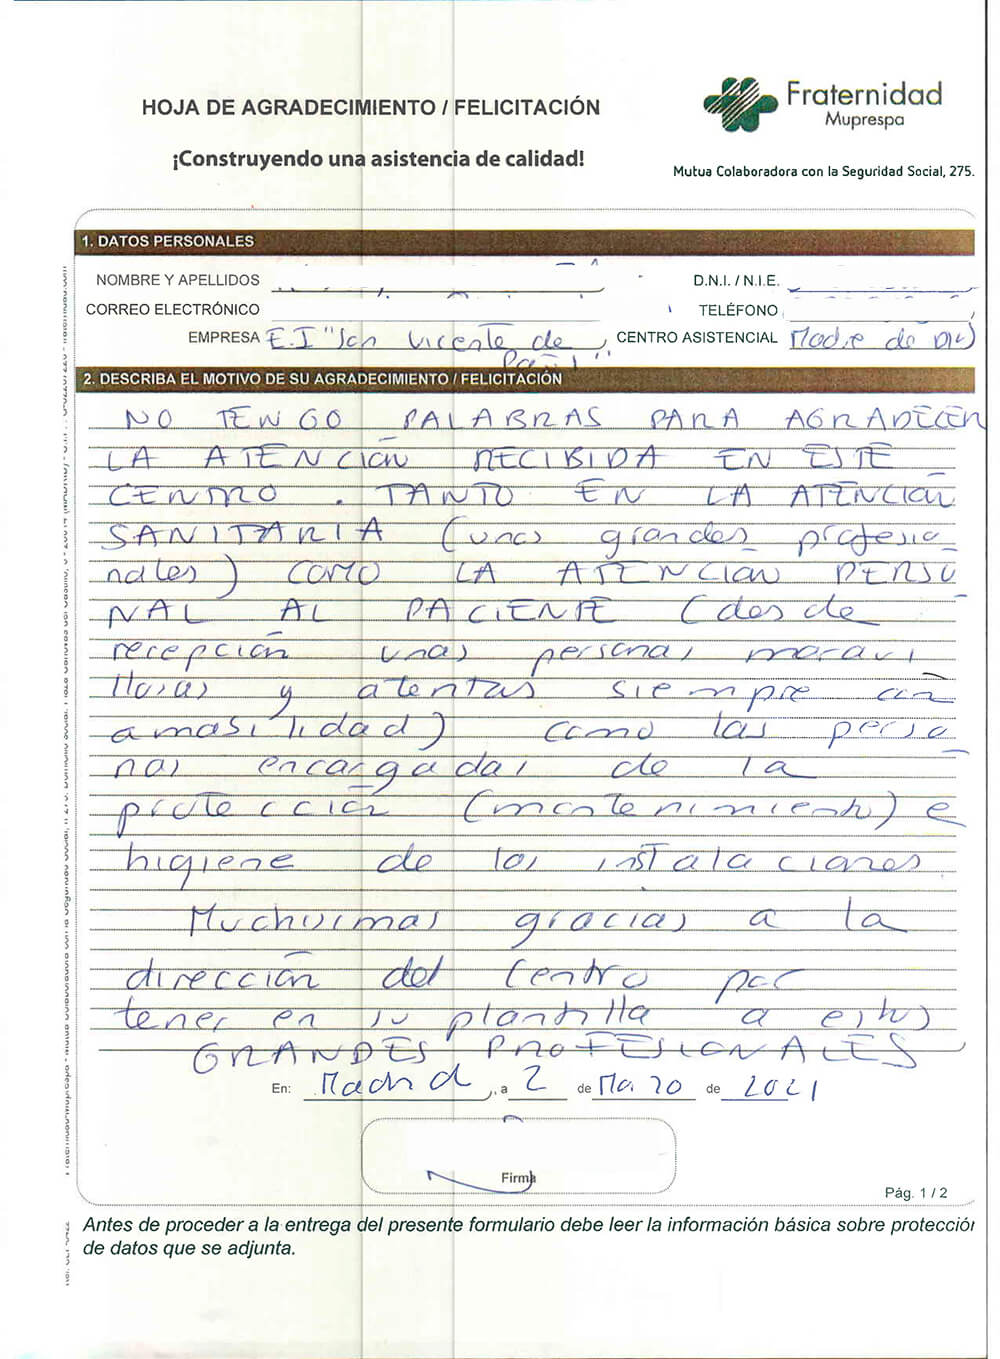 HOJA DE AGRADECIMIENTO / FELICITACIÓN
Fraternidad
Muprespa
¡Construyendo una asistencia de calidad!
Mutua Colaboradora con la Seguridad Social, 275.
1. DATOS PERSONALES
NOMBRE Y APELLIDOS
D.N.I. / N.I.E.
CORREO ELECTRÓNICO
TELÉFONO
EMPRESA E.I "San Vicente de Paúl"
CENTRO ASISTENCIAL Madre de Dios
2. DESCRIBA EL MOTIVO DE SU AGRADECIMIENTO / FELICITACIÓN
NO TENGO PALABRAS PARA AGRADECER
LA ATENCIÓN RECIBIDA EN ESTE
CENTRO. TANTO EN LA ATENCIÓN
SANITARIA (unos grandes profesio
nales) COMO LA ATENCION PERSO
NAL AL PACIENTE (desde
recepción unas personas maravi
llosas y atentas siempre con
amabilidad) como las perso
nas encargadas de la
protección (mantenimiento) e
higiene de las instalaciones.
Muchísimas gracias a la
dirección del centro por
tener en su plantilla a estos
GRANDES PROFESIONALES
En: Madrid, a 2 de Marzo de 2021
Firma
Pág. 1 / 2
Antes de proceder a la entrega del presente formulario debe leer la información básica sobre protección
de datos que se adjunta.